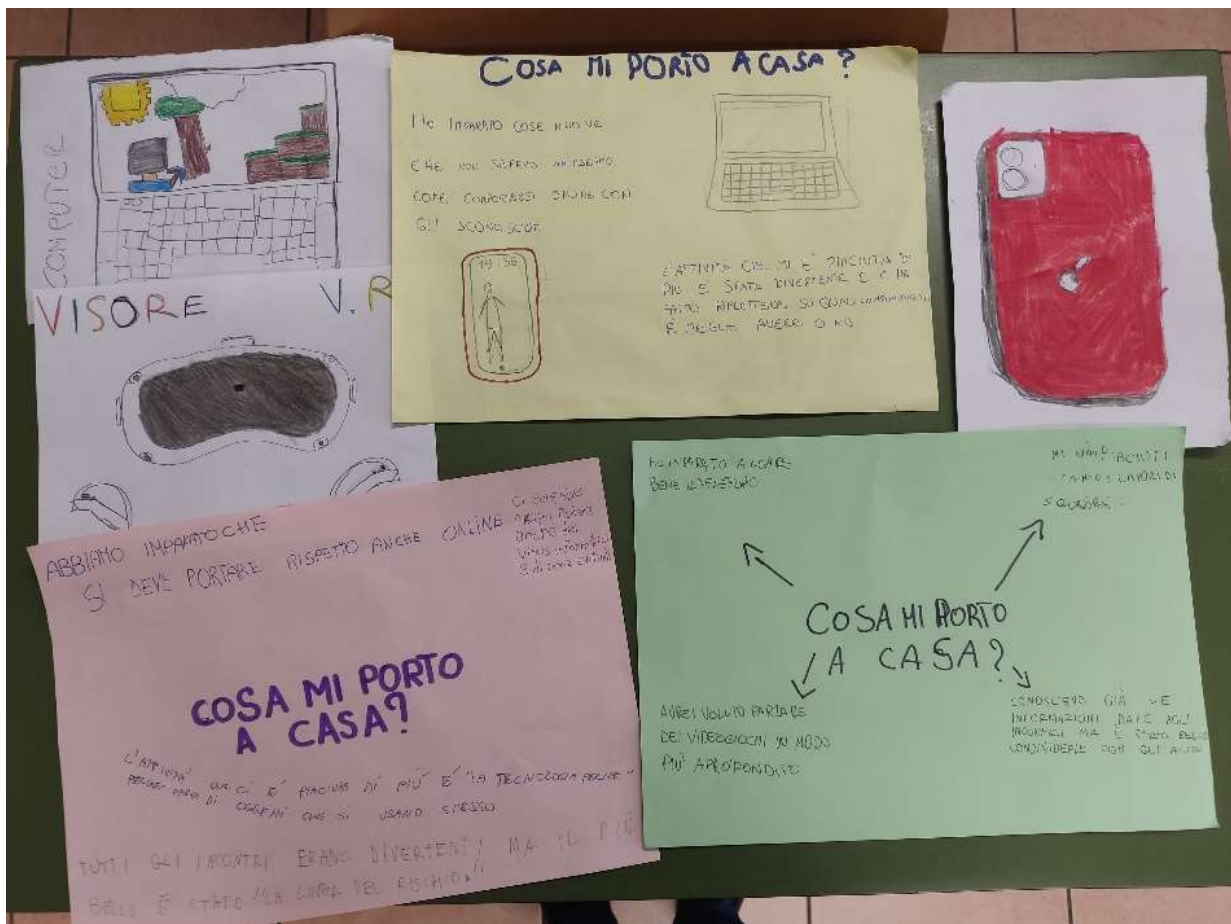 COMPUTER
VISORE V.R
COSA MI PORTO A CASA?
HO IMPARATO COSE NUOVE
CHE NON SAPEVO
COME ONLINE CON
GLI
19:56
L'ATTIVITÀ CHE MI È PIACIUTA DI
PIÙ È STATA DIVERTENTE E CI HA
FATTO RIFLETTERE SU QUALI
È MEGLIO AVERE O NO
ABBIAMO IMPARATO CHE
SI DEVE PORTARE RISPETTO ANCHE ONLINE
COSA MI PORTO
A CASA?
L'ATTIVITÀ CHE CI È PIACIUTA DI PIÙ È "LA TECNOLOGIA PER ME"
PERCHÉ PARLA DI OGGETTI CHE SI USANO SPESSO
TUTTI GLI INCONTRI ERANO DIVERTENTI MA IL PIÙ
BELLO È STATO "LA LINEA DEL RISCHIO"
HO IMPARATO A USARE
BENE IL TELEFONO
MI SONO PIACIUTI
I LAVORI DI
SQUADRA
COSA MI PORTO
A CASA?
AVREI VOLUTO PARLARE
DEI VIDEOGIOCHI IN MODO
PIÙ APPROFONDITO
CONOSCEVO GIÀ LE
INFORMAZIONI DATE AGLI
INCONTRI MA È STATO BELLO
CONDIVIDERLE CON GLI ALTRI